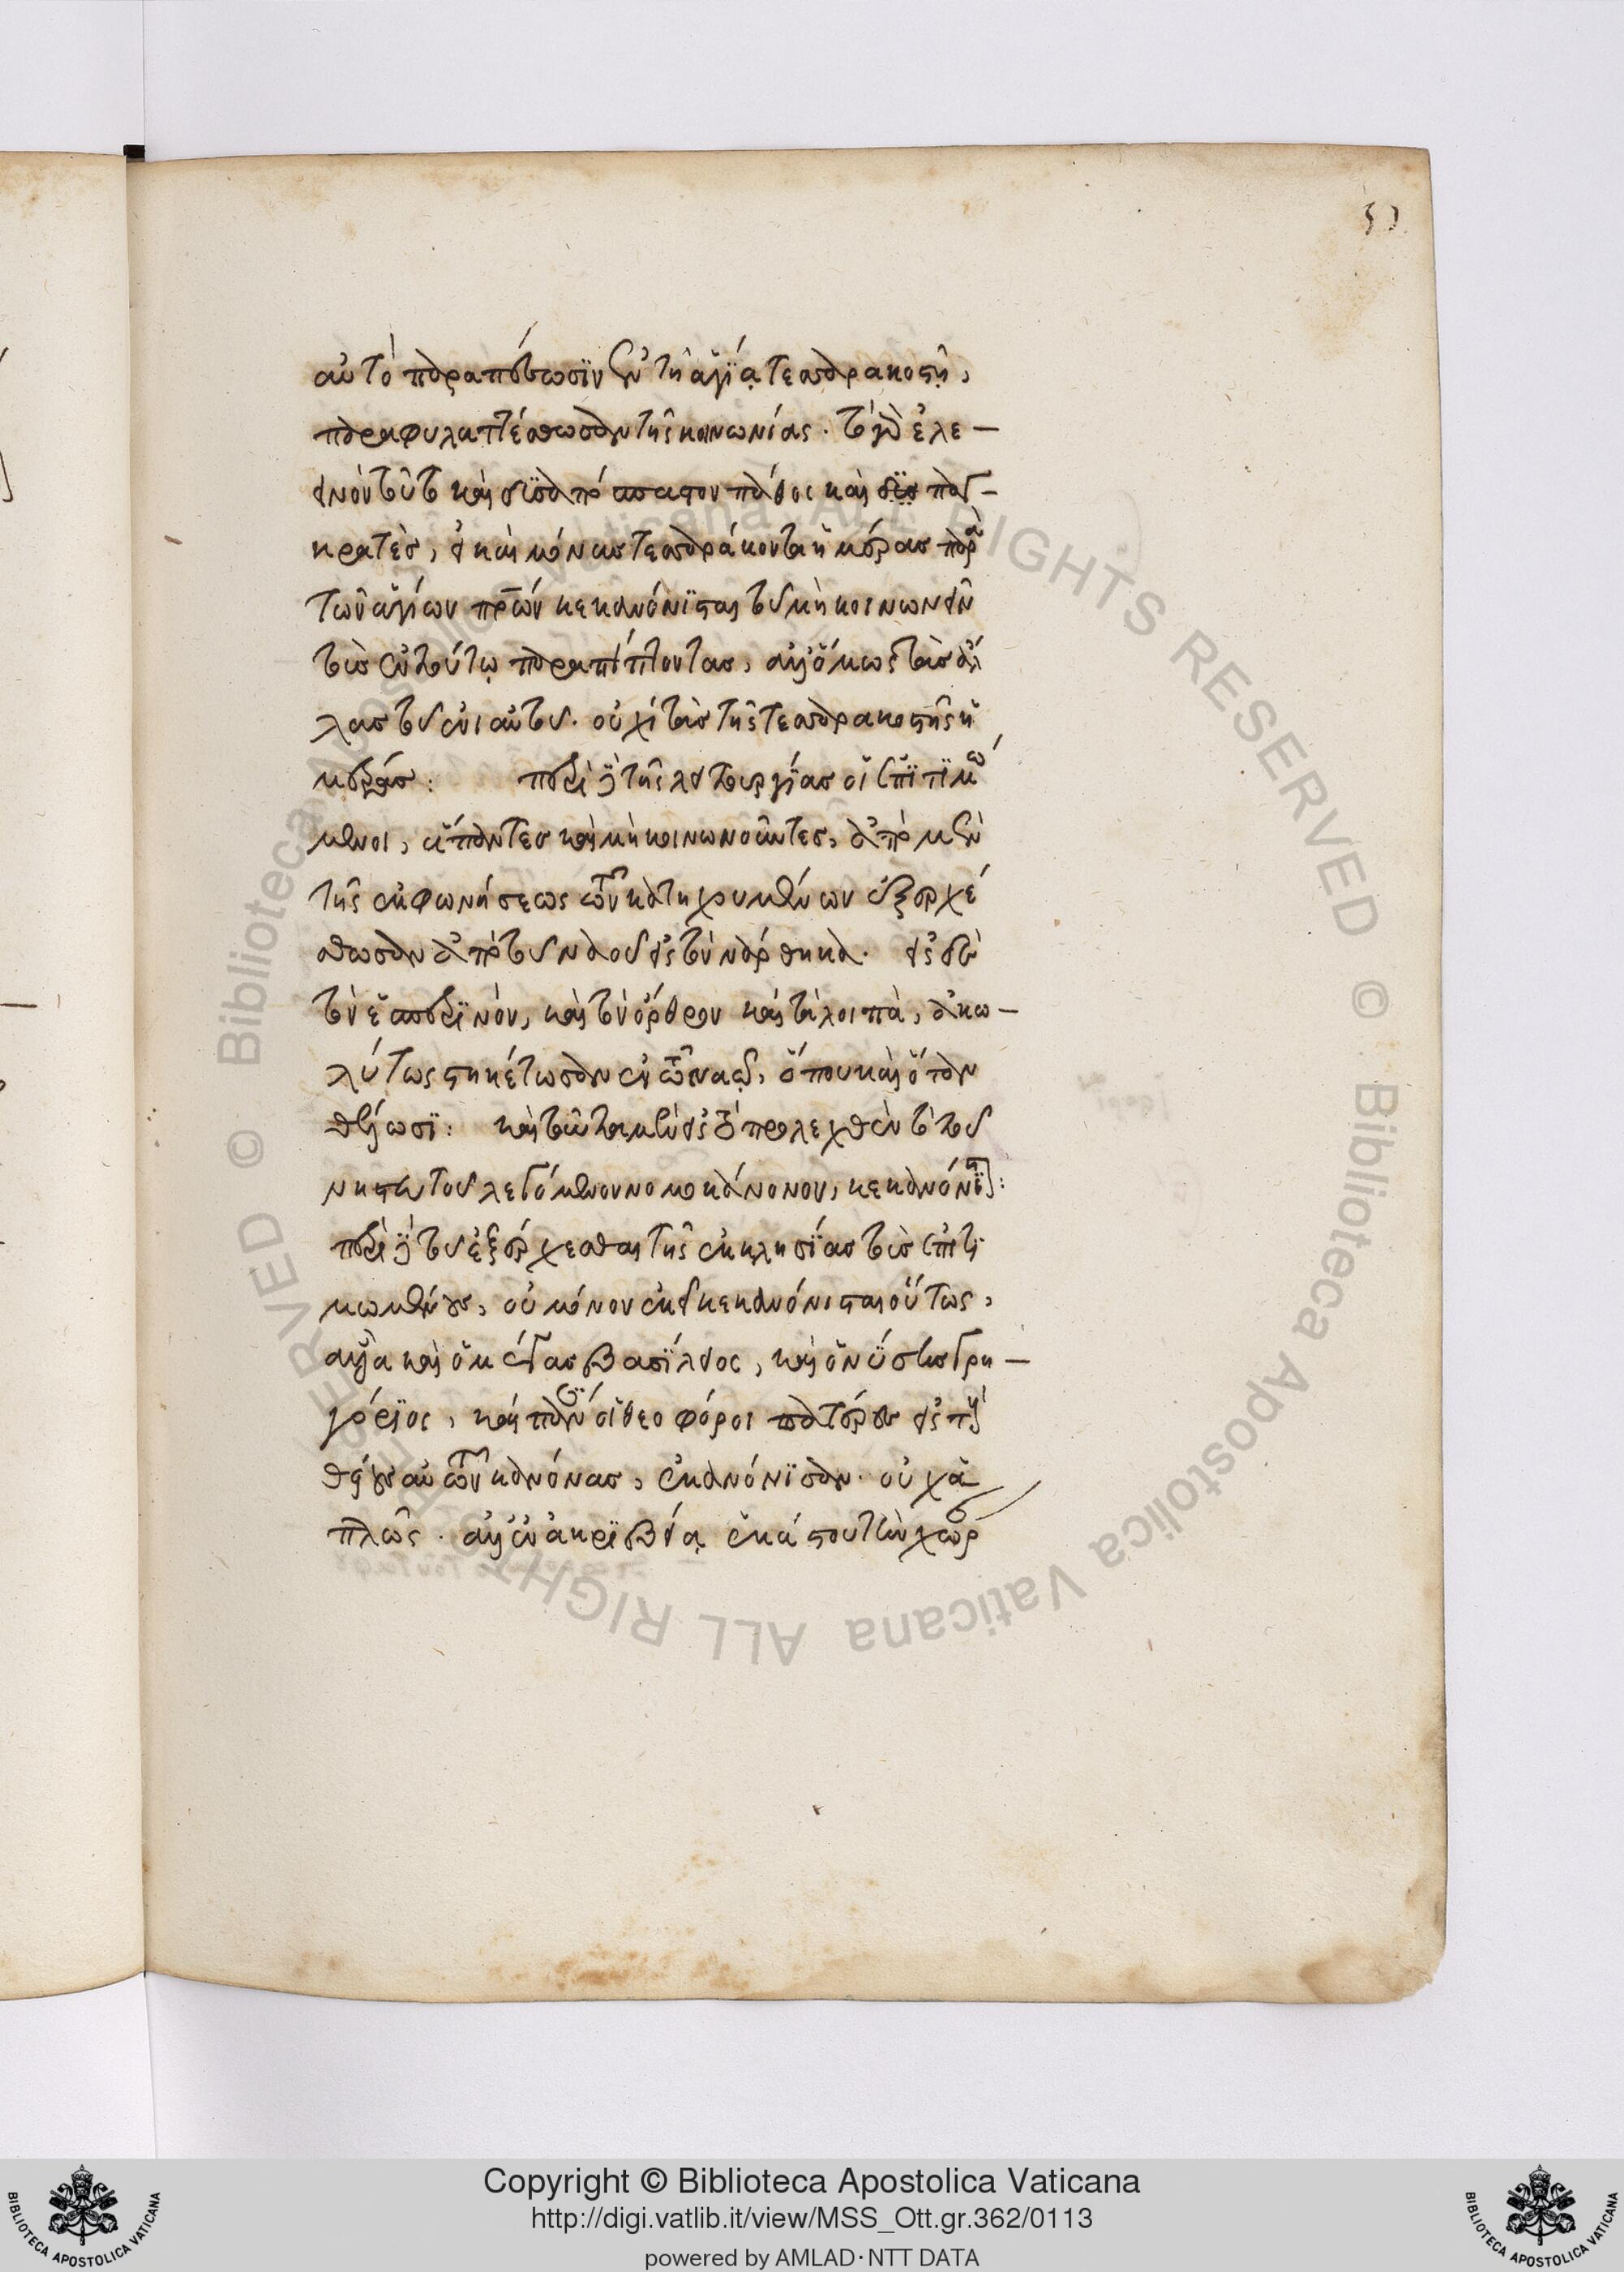 51
αὐτὸ παραπέσωσϊν ἐν τῆ ἁγία τεσσαρακοστῆ,
παραφυλαττέσθωσαν τῆς κοινωνίας. τὸ γὰρ ἐλε-
εινὸν τοῦτο καὶ δϋσαπόσπαστον πάθος καὶ παγ-
κρατὲσ, εἰ καὶ μόνασ τεσσαράκοντα ἡμέρασ παρὰ
τῶν ἁγίων πρων κεκανόνϊσται τοῦ μὴ κοινωνεῖν
τοὺσ ἐν τούτω παραπίπτοντασ, ἀλλ' ὅμως τὰσ ἄλ
λασ τοῦ ἐνιαυτοῦ. οὐχὶ τὰσ τῆς τεσσαρακοστῆς ἡ
μέρασ: περὶ δὲ τῆς λειτουργϊασ οἱ ἐπϊτϊμώ
μενοι, ἅπαντεσ καὶ μὴ κοινωνοῦντεσ, ἀπὸ μὲν
τῆς ἐκφωνήσεως τῶν κατηχουμένων ἐξερχέ
σθωσαν ἀπὸ τοῦ ναοῦ εἰς τὸν νάρθηκα. εἰς δὲ
τὸν ἑσπερϊνὸν, καὶ τὸν ὄρθρον καὶ τὰ λοιπὰ, ἀκω-
λύτως στηκέτωσαν ἐν τῶ ναῶ, ὅπου καὶ ὅταν
θέλωσϊ: καὶ ταῦτα μὲν εἰς τὸ προλεχθὲν τὸ τοῦ
νηστευτοῦ λεγόμενον νομοκάνονον, κεκανόνϊσται:
περὶ δὲ τοῦ ἐξέρχεσθαι τῆς ἐκκλησϊασ τοὺσ ἐπιτϊ
μωμένους, οὐ μόνον ἐκεῖ κεκανόνισται οὕτως,
ἀλλὰ καὶ ὁ μέγασ βασϊλειος, καὶ ὁ νύσσησ γρη-
γόρϊος, καὶ πάντες οἱ θεοφόροι πατέρεσ εἰς τοὺς
θείους αὐτῶν κανόνασ, ἐκανόνϊσαν. οὐχ ἁ
πλῶς. ἀλλ' ἐν ἀκρϊβεία ἑκάστου τὴν χώρ
Copyright © Biblioteca Apostolica Vaticana
http://digi.vatlib.it/view/MSS_Ott.gr.362/0113
powered by AMLAD·NTT DATA